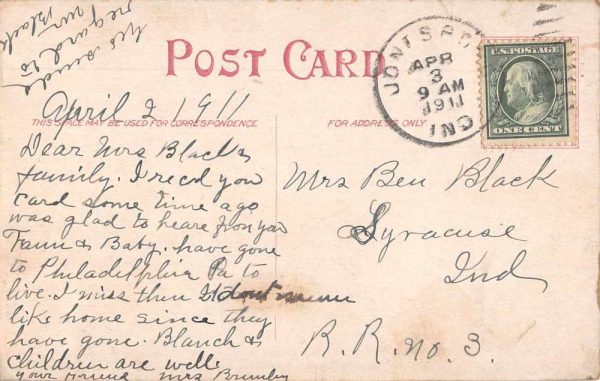 POST CARD
THIS SPACE MAY BE USED FOR CORRESPONDENCE
FOR ADDRESS ONLY
JONESBORO
APR
3
9 AM
1911
IND
U.S. POSTAGE
ONE CENT
April 2 1911
Dear Mrs Black &
family. I recd you
card some time ago
was glad to heare from you
& Baby. have gone
to Philadelphia Pa to
live. I miss then dont
like home since they
have gone. Blanch &
children are well
your Friend Mrs
regards to
Mrs Ben Black
Syracuse
Ind
R. R. No. 3.